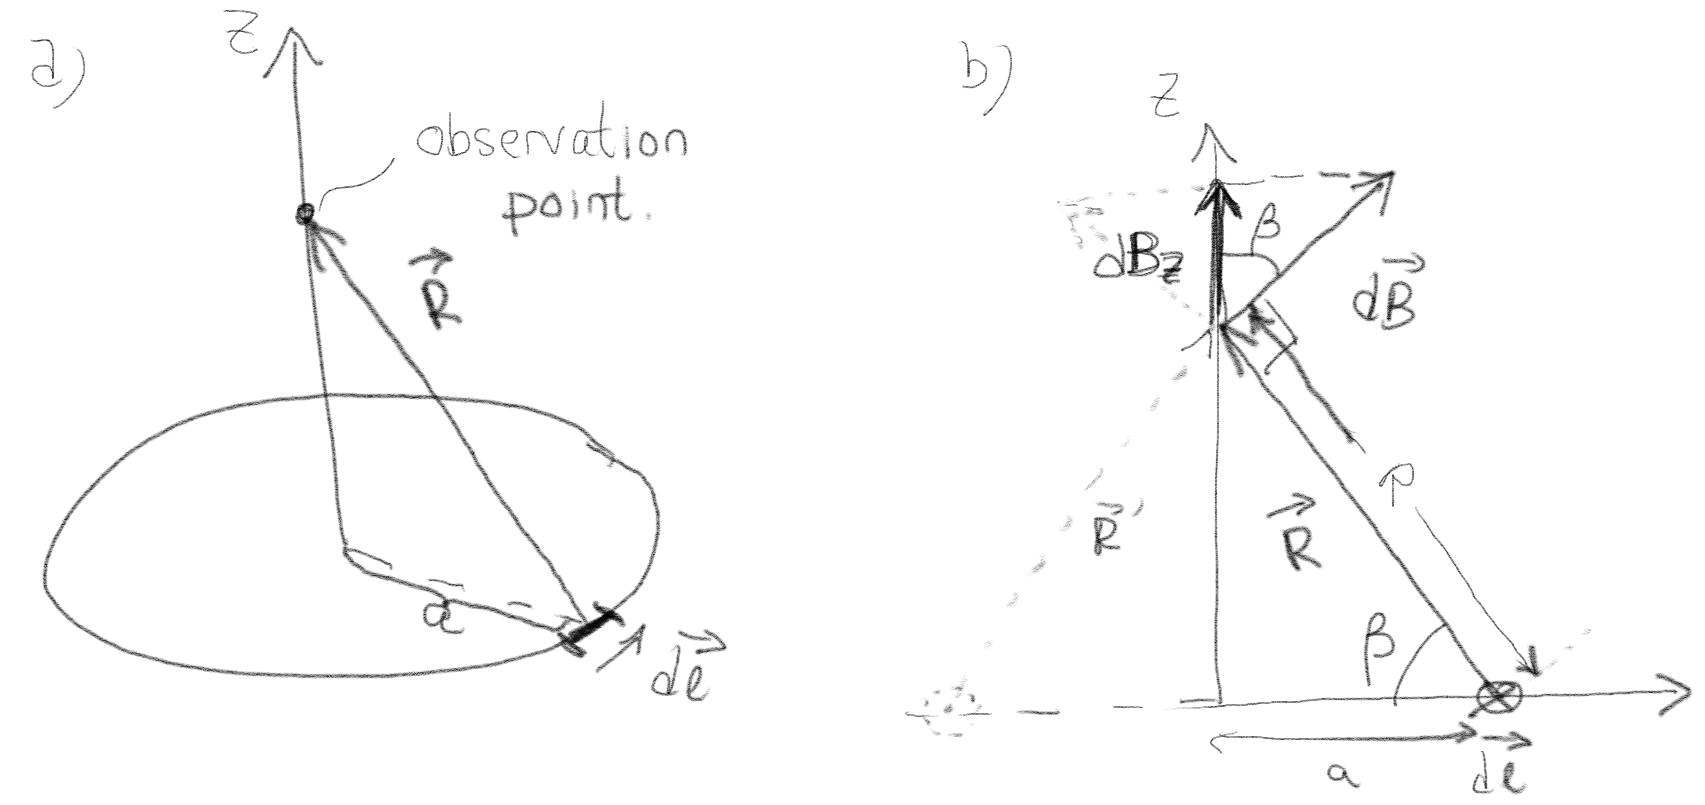 a)
z
observation
point.
R⃗
a
dℓ⃗
b)
z
β
dB_z
dB⃗
ρ
R⃗'
R⃗
β
a
dℓ⃗